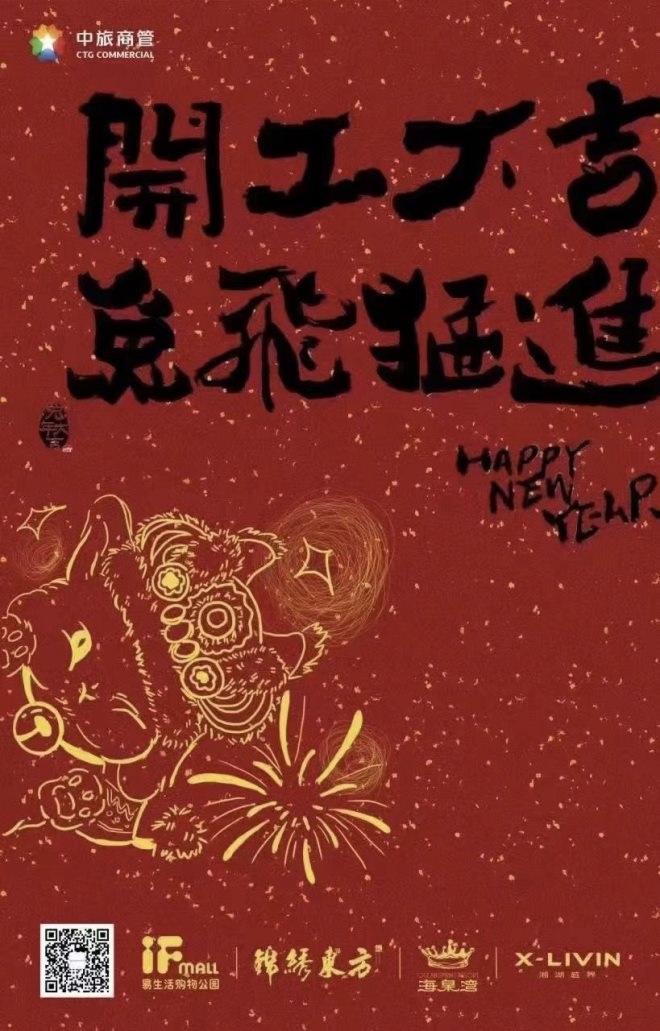 中旅商管
CTG COMMERCIAL
開工大吉
兔飛猛進
HAPPY
NEW
YEAR.
iF MALL
易生活购物公园
锦绣東方
海泉湾
X-LIVIN
湘湖世界